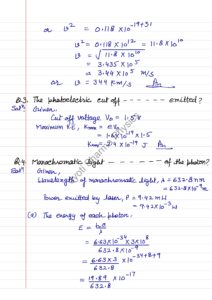 or v² = 0.118 × 10^-19+31
v² = 0.118 × 10^12 = 11.8 × 10^10
v = √11.8 × 10^10
= 3.435 × 10^5
= 3.44 × 10^5 m/s
or v = 344 Km/s Ans
Q.3. The photoelectric cut off - - - - - - emitted?
Solⁿ. Given
Cut off voltage V₀ = 1.5 V
Maximum KE, Kmax = eV₀
= 1.6 × 10^-19 × 1.5
Kmax = 2.4 × 10^-19 J Ans
Q.4 Monochromatic light - - - - - - of the photon?
Solⁿ Given
Wavelength of monochromatic light, λ = 632.8 nm
= 632.8 × 10^-9 m
Power emitted by laser, P = 9.42 mW
= 9.42 × 10^-3 W
(a) The energy of each photon
E = hc/λ
= 6.63 × 10^-34 × 3 × 10^8 / 632.8
= 6.63 × 3 / 632.8 × 10^-34+8+9
= 19.89 / 632.8 × 10^-17